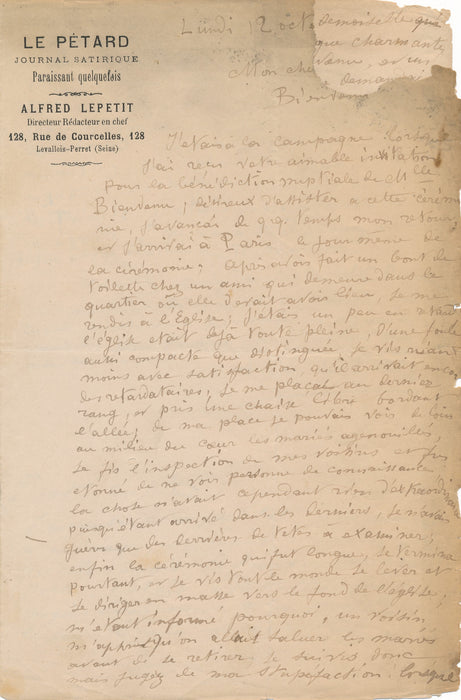 LE PÉTARD
JOURNAL SATIRIQUE
Paraissant quelquefois
ALFRED LEPETIT
Directeur Rédacteur en chef
128, Rue de Courcelles, 128
Levallois-Perret (Seine)
Lundi 12 oct demoiselle que
que charmante
Mon che venue, et un
demandai
Bienvenu
J'étais à la campagne lorsque
j'ai reçu votre aimable invitation
pour la bénédiction nuptiale de Mlle
Bienvenu; désireux d'assister à cette cérémo
nie, j'avançai de qq. temps mon retour,
et j'arrivai à Paris le jour même de
la cérémonie; après avoir fait un bout de
toilette chez un ami qui demeure dans le
quartier où elle devait avoir lieu, je me
rendis à l'Eglise; j'étais un peu en retard
l'église était déjà toute pleine, d'une foule
aussi compacte que distinguée, je vis néan
moins avec satisfaction, qu'il arrivait encore
des retardataires, je me plaçai au dernier
rang, et pris une chaise libre bordant
l'allée; de ma place je pouvais voir de loin
au milieu du cœur les mariés agenouillés,
je fis l'inspection de mes voisins et fus
étonné de ne voir personne de connaissance
la chose n'avait cependant rien d'extraordinaire
puisqu'étant arrivé dans les derniers, je n'avais
guère que des derrières de têtes à examiner;
enfin la cérémonie qui fut longue, se termina
pourtant, et je vis tout le monde se lever et
se diriger en masse vers le fond de l'église,
m'étant informé pourquoi, un voisin,
m'apprit qu'on allait saluer les mariés
avant de se retirer, je suivis donc
mais jugez de ma stupéfaction! lorsque